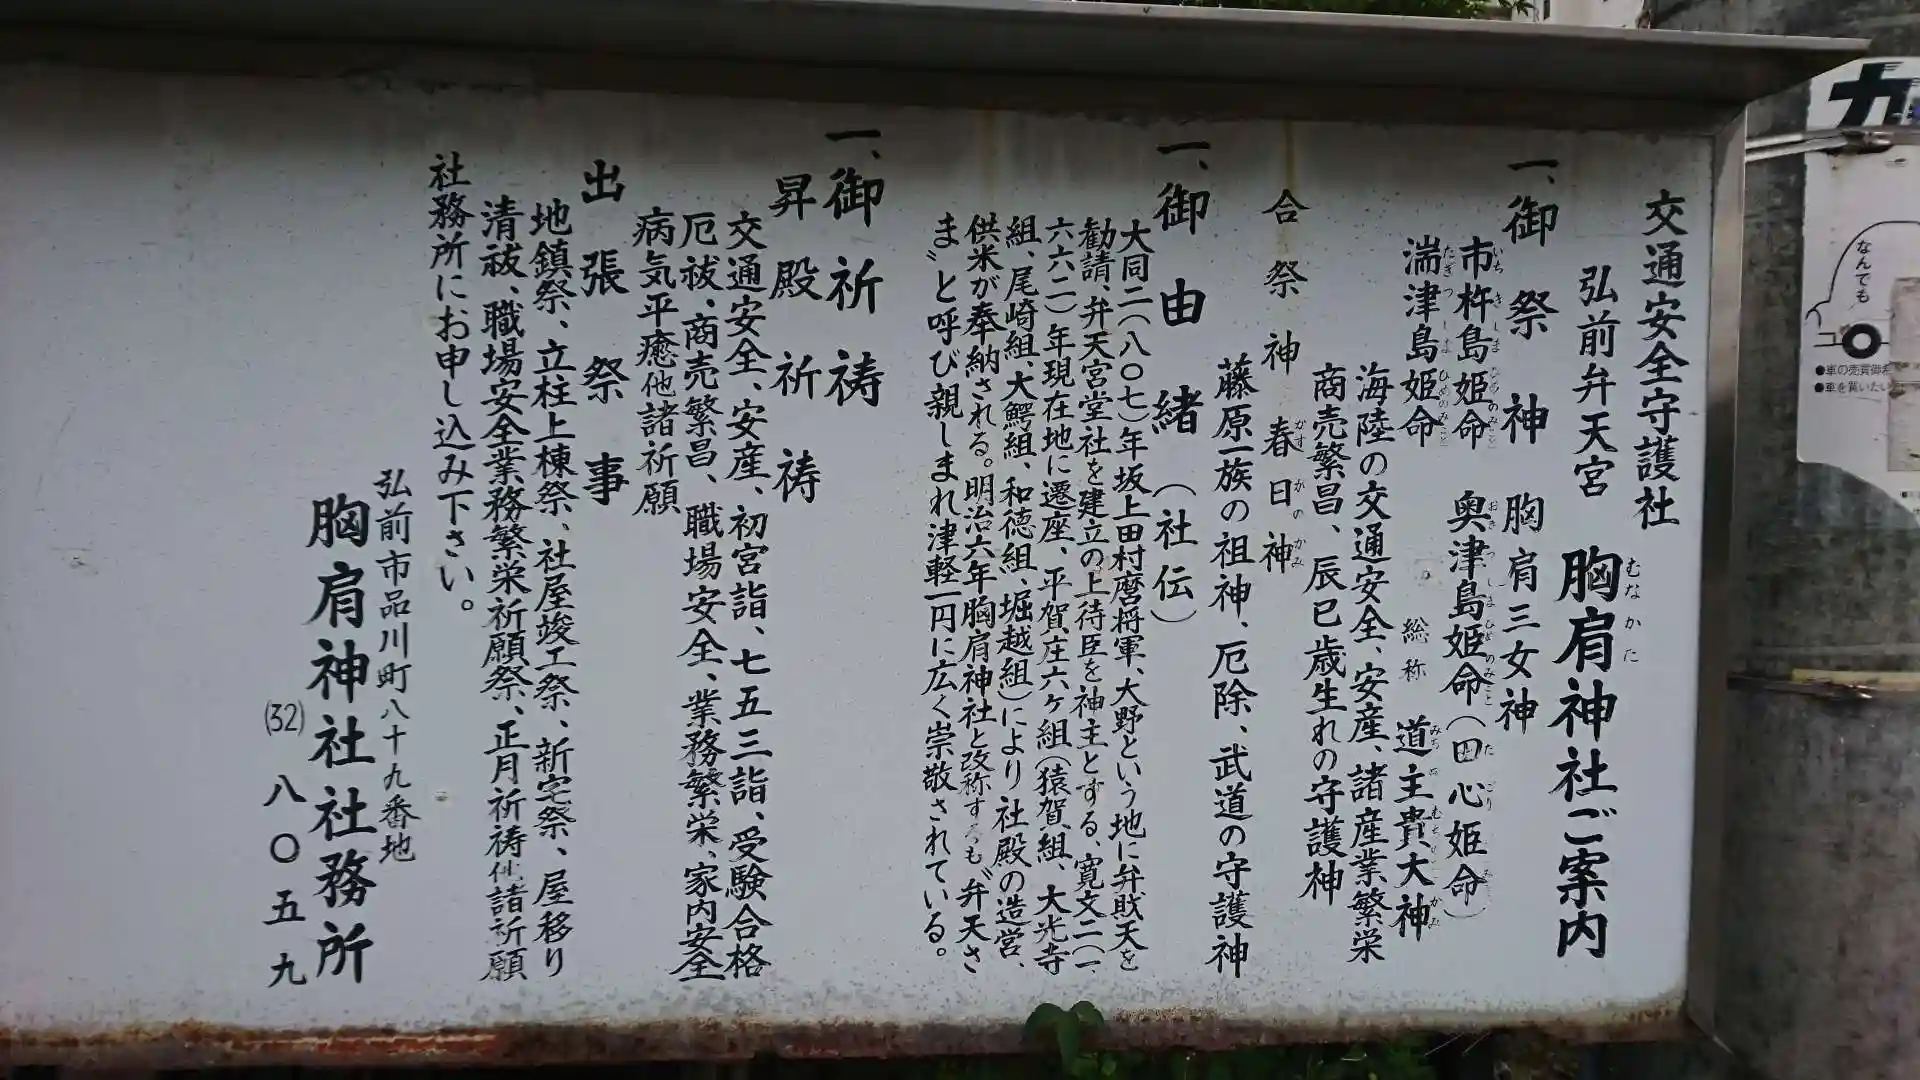 交通安全守護社
弘前弁天宮 胸肩神社ご案内
むなかた
一、御祭神 胸肩三女神
市杵島姫命 奥津島姫命(田心姫命)
いちきしまひめのみこと おきつしまひめのみこと たごりひめ
湍津島姫命 総称 道主貴大神
たぎつしまひめのみこと みちぬむちのおおかみ
海陸の交通安全、安産、諸産業繁栄
商売繁昌、辰巳歳生れの守護神
合祭神 春日神
かすがのかみ
藤原一族の祖神、厄除、武道の守護神
一、御由緒(社伝)
大同二(八〇七)年坂上田村麿将軍、大野という地に弁財天を
勧請、弁天宮堂社を建立の上待臣を神主とする、寛文二(一
六六二)年現在地に遷座、平賀庄六ヶ組(猿賀組、大光寺
組、尾崎組、大鰐組、和徳組、堀越組)により社殿の造営、
供米が奉納される。明治六年胸肩神社と改称するも〝弁天さ
ま〟と呼び親しまれ津軽一円に広く崇敬されている。
一、御祈祷
昇殿祈祷
交通安全、安産、初宮詣、七五三詣、受験合格
厄祓、商売繁昌、職場安全、業務繁栄、家内安全
病気平癒他諸祈願
出張祭事
地鎮祭、立柱上棟祭、社屋竣工祭、新宅祭、屋移り
清祓、職場安全業務繁栄祈願祭、正月祈祷他諸祈願
社務所にお申し込み下さい。
弘前市品川町八十九番地
胸肩神社社務所
(32)八〇五九
カ
なんでも
●車の売買御
●車を買いたい